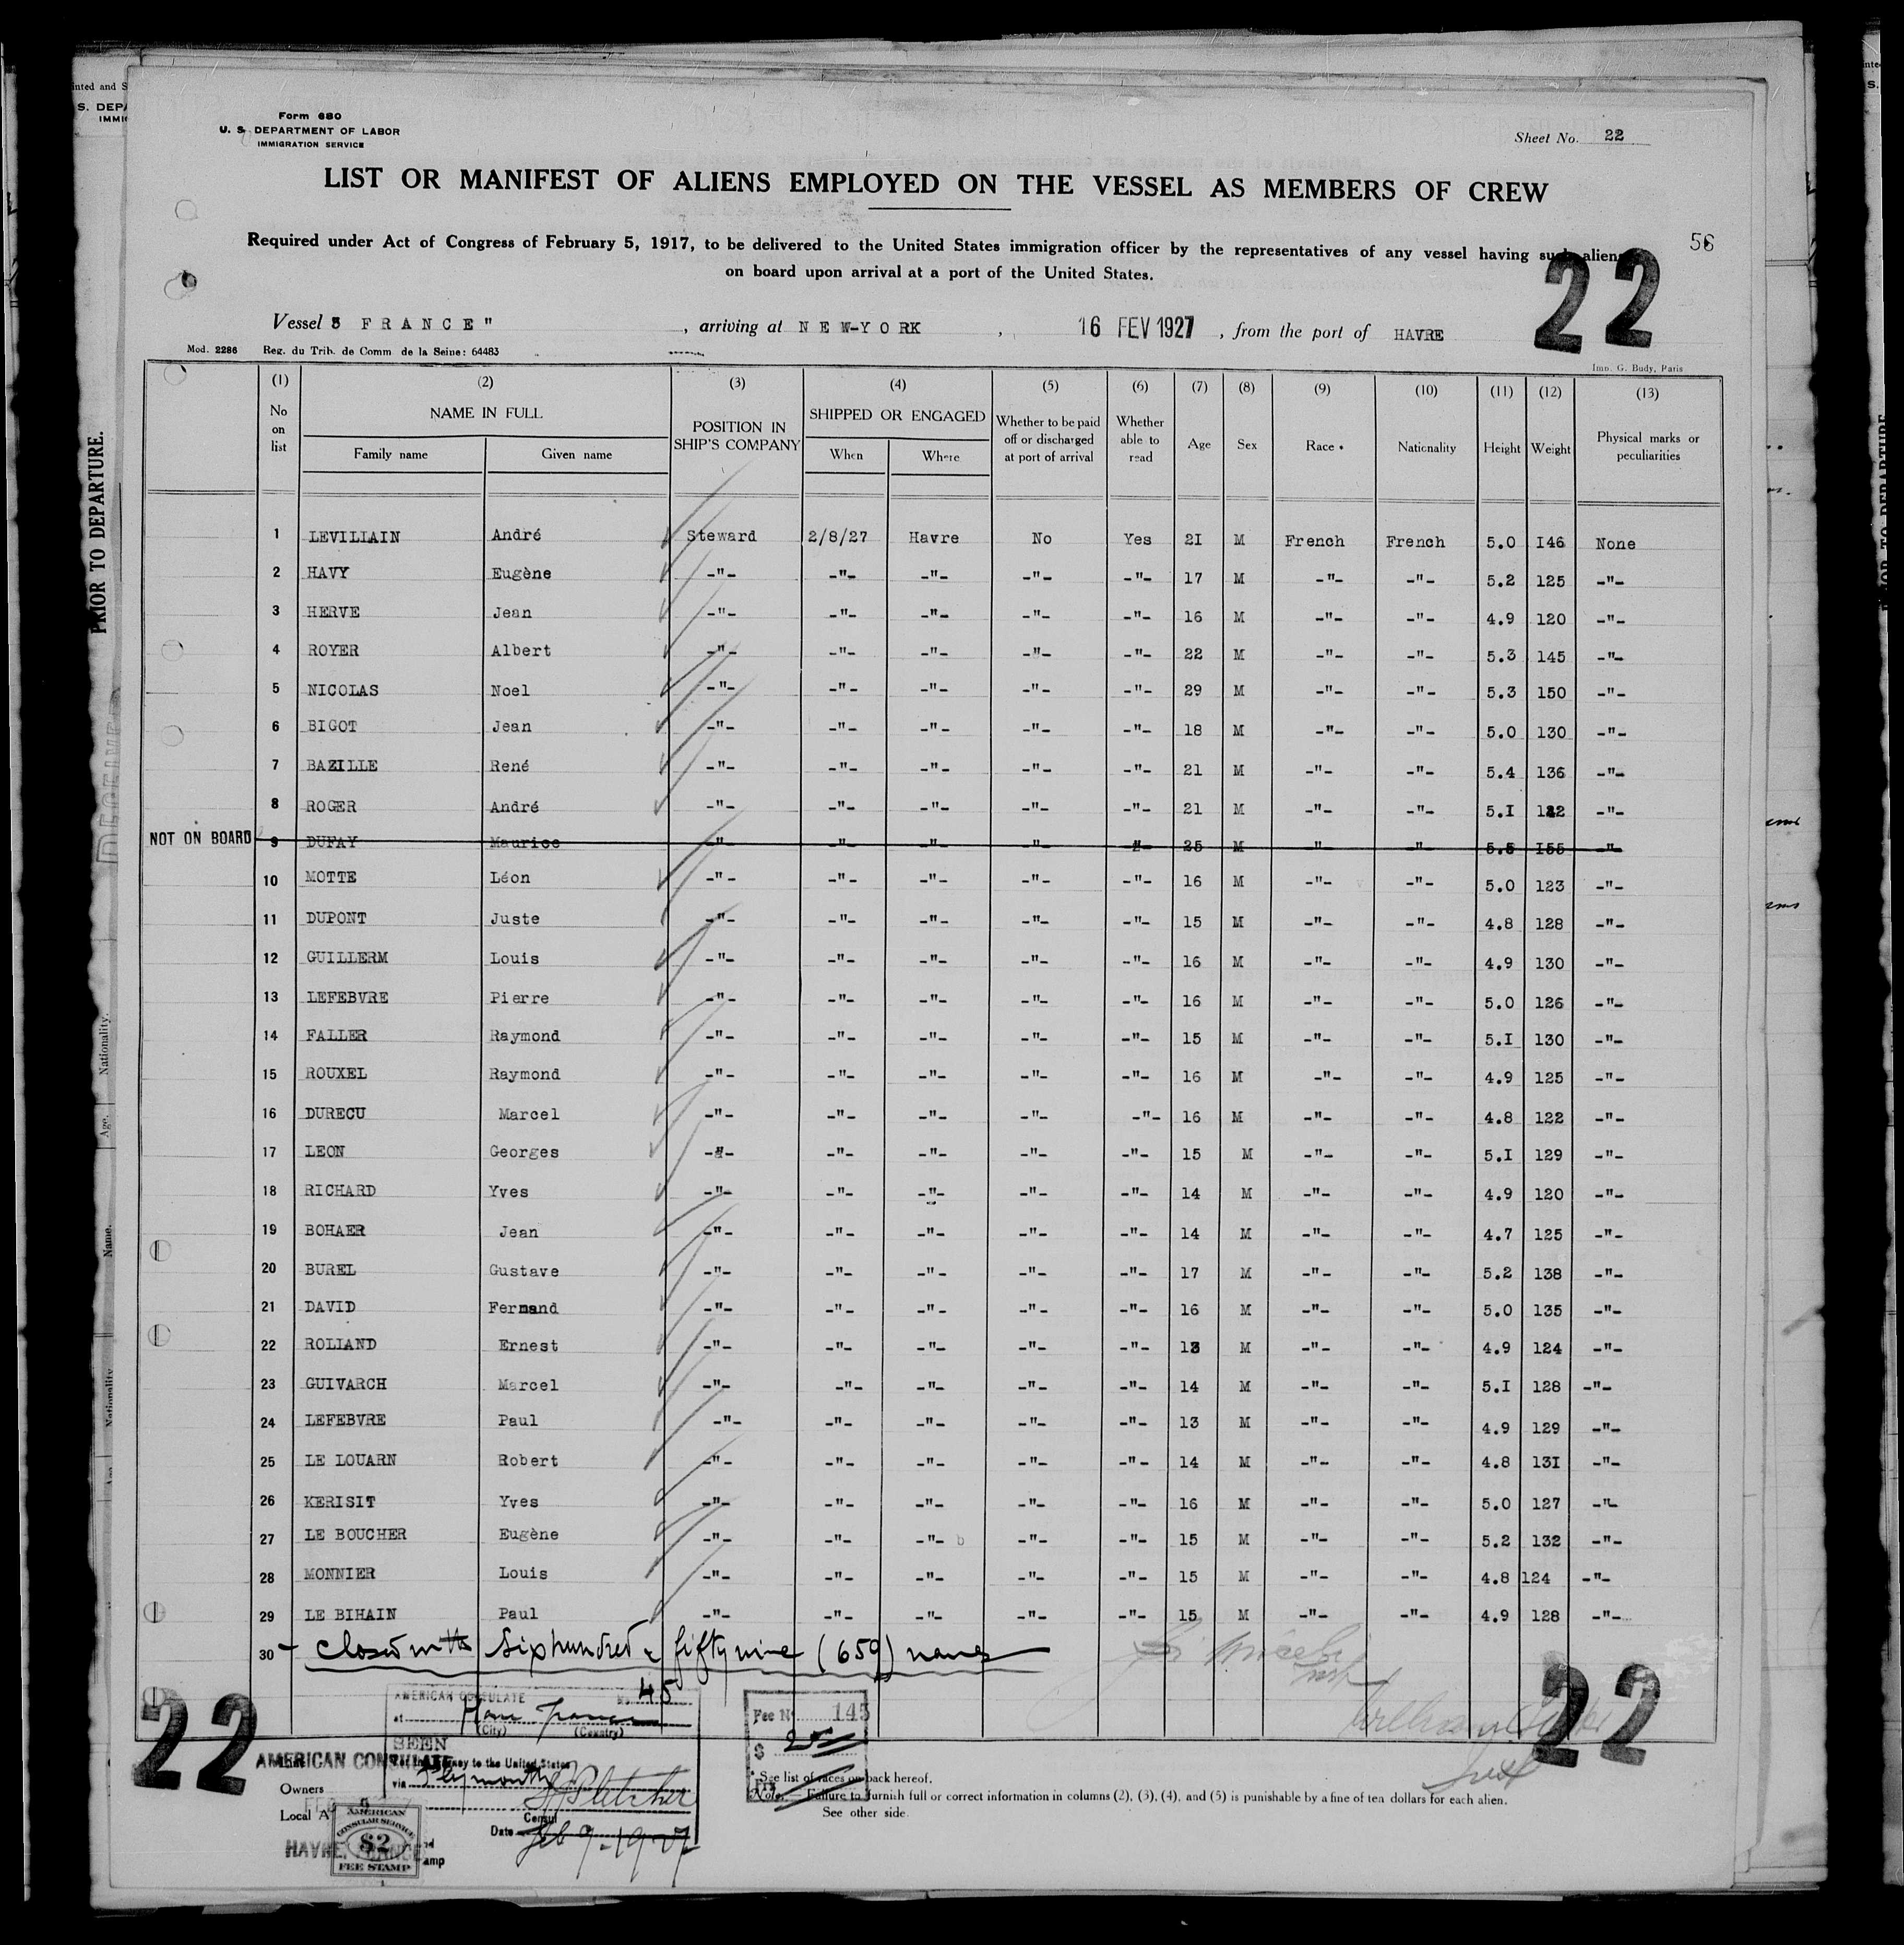 Form 680
U. S. DEPARTMENT OF LABOR
IMMIGRATION SERVICE
Sheet No. 22
LIST OR MANIFEST OF ALIENS EMPLOYED ON THE VESSEL AS MEMBERS OF CREW
Required under Act of Congress of February 5, 1917, to be delivered to the United States immigration officer by the representatives of any vessel having such aliens
on board upon arrival at a port of the United States.
56
22
Vessel FRANCE" , arriving at NEW-YORK , 16 FEV 1927 , from the port of HAVRE
Mod. 2286 Reg. du Trib. de Comm de la Seine: 64483
Imp. G. Budy, Paris
(1) (2) (3) (4) (5) (6) (7) (8) (9) (10) (11) (12) (13)
No on list NAME IN FULL Family name Given name POSITION IN SHIP'S COMPANY SHIPPED OR ENGAGED When Where Whether to be paid off or discharged at port of arrival Whether able to read Age Sex Race Nationality Height Weight Physical marks or peculiarities
1 LEVILLAIN André Steward 2/8/27 Havre No Yes 2I M French French 5.0 I46 None
2 HAVY Eugène -"- -"- -"- -"- -"- 17 M -"- -"- 5.2 125 -"-
3 HERVE Jean -"- -"- -"- -"- -"- 16 M -"- -"- 4.9 120 -"-
4 ROYER Albert -"- -"- -"- -"- -"- 22 M -"- -"- 5.3 145 -"-
5 NICOLAS Noel -"- -"- -"- -"- -"- 29 M -"- -"- 5.3 150 -"-
6 BIGOT Jean -"- -"- -"- -"- -"- 18 M -"- -"- 5.0 130 -"-
7 BAZILLE René -"- -"- -"- -"- -"- 21 M -"- -"- 5.4 136 -"-
8 ROGER André -"- -"- -"- -"- -"- 21 M -"- -"- 5.I 122 -"-
NOT ON BOARD 9 DUFAY Maurice -"- -"- -"- -"- -"- 25 M -"- -"- 5.5 I55 -"-
10 MOTTE Léon -"- -"- -"- -"- -"- 16 M -"- -"- 5.0 123 -"-
11 DUPONT Juste -"- -"- -"- -"- -"- 15 M -"- -"- 4.8 128 -"-
12 GUILLERM Louis -"- -"- -"- -"- -"- 16 M -"- -"- 4.9 130 -"-
13 LEFEBVRE Pierre -"- -"- -"- -"- -"- 16 M -"- -"- 5.0 126 -"-
14 FALLER Raymond -"- -"- -"- -"- -"- 15 M -"- -"- 5.I 130 -"-
15 ROUXEL Raymond -"- -"- -"- -"- -"- 16 M -"- -"- 4.9 125 -"-
16 DURECU Marcel -"- -"- -"- -"- -"- 16 M -"- -"- 4.8 122 -"-
17 LEON Georges -"- -"- -"- -"- -"- 15 M -"- -"- 5.I 129 -"-
18 RICHARD Yves -"- -"- -"- -"- -"- 14 M -"- -"- 4.9 120 -"-
19 BOHAER Jean -"- -"- -"- -"- -"- 14 M -"- -"- 4.7 125 -"-
20 BUREL Gustave -"- -"- -"- -"- -"- 17 M -"- -"- 5.2 138 -"-
21 DAVID Fernand -"- -"- -"- -"- -"- 16 M -"- -"- 5.0 135 -"-
22 ROLLAND Ernest -"- -"- -"- -"- -"- 13 M -"- -"- 4.9 124 -"-
23 GUIVARCH Marcel -"- -"- -"- -"- -"- 14 M -"- -"- 5.I 128 -"-
24 LEFEBVRE Paul -"- -"- -"- -"- -"- 13 M -"- -"- 4.9 129 -"-
25 LE LOUARN Robert -"- -"- -"- -"- -"- 14 M -"- -"- 4.8 13I -"-
26 KERISIT Yves -"- -"- -"- -"- -"- 16 M -"- -"- 5.0 127 -"-
27 LE BOUCHER Eugène -"- -"- -"- b -"- -"- 15 M -"- -"- 5.2 132 -"-
28 MONNIER Louis -"- -"- -"- -"- -"- 15 M -"- -"- 4.8 124 -"-
29 LE BIHAIN Paul -"- -"- -"- -"- -"- 15 M -"- -"- 4.9 128 -"-
30 - closed with Six hundred & fifty nine (659) names
22
22
AMERICAN CONSULATE No. 45
at Havre France
(City) (Country)
SEEN
For the journey to the United States
via Plymouth
Consul
Date Feb 9-1927
Fee No 145
$ 2.00
AMERICAN CONSULATE
Owners
Local A
HAVRE, FRANCE
AMERICAN CONSULAR SERVICE
$2
FEE STAMP
* See list of races on back hereof.
Note.—Failure to furnish full or correct information in columns (2), (3), (4), and (5) is punishable by a fine of ten dollars for each alien.
See other side.
PRIOR TO DEPARTURE.
Nationality.
Age.
Name.
Nationality